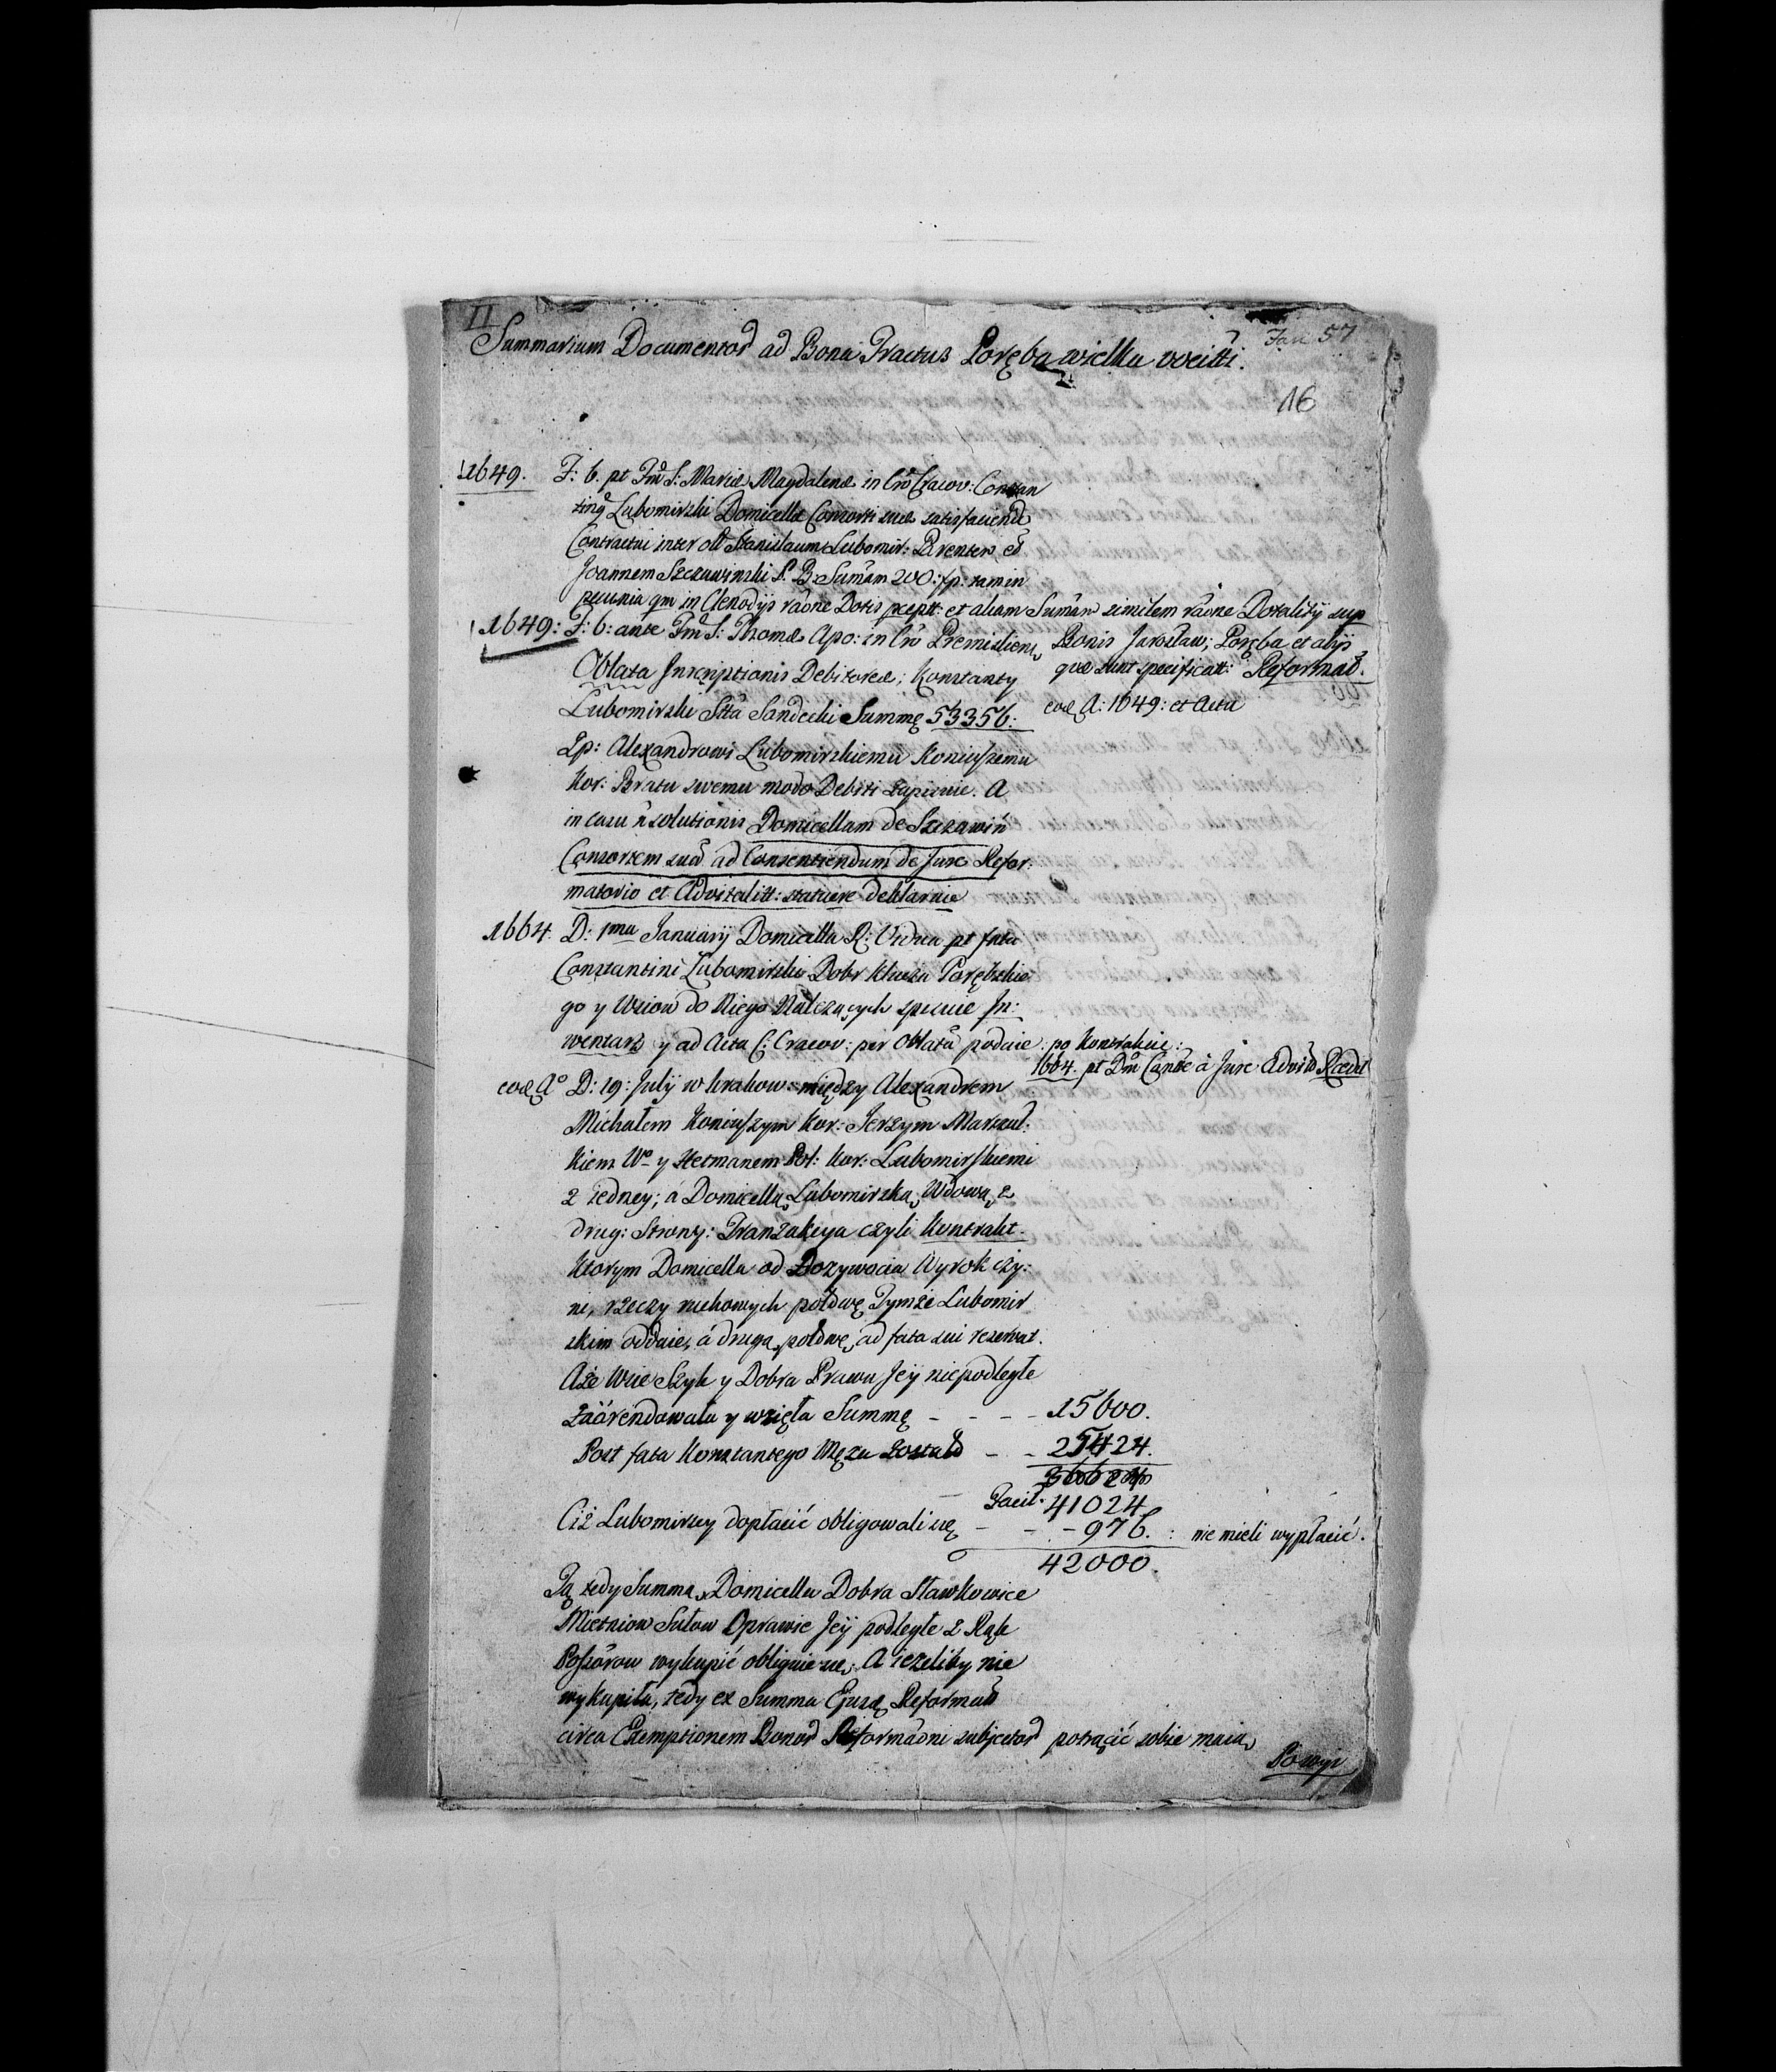 II
Summarium Documentor ad Bona Tractus Poręba wielka vocitt.
Fasc 57
16
1649. F: 6. pt Fm S: Mariæ Magdalenæ in Cro Cracov: Constan
ting Lubomirski Domicellæ Consorti suæ satisfaciendo
Contractui inter olt Stanislaum Lubomir: Parentem et
Joannem Szczawinski P. B: Sumam 200:fp: tam in
pecunia qm in Clenodijs raone Dotis pceptt: et aliam Sumam similem raone Dotalitij sup
Bonis Jarosław; Poręba et alijs
quæ sunt specificatt: Reformat.
eod A: 1649: et Actu
1649: F: 6: ante Fm S: Thomæ Apo: in Cro Premislien
Oblata Inscriptionis Debitoreæ; Konstanty
Lubomirski Stta Sandecki Summę 53356:
Zp: Alexandrowi Lubomirskiemu Koniuszemu
Kor: Bratu swemu modo Debiti zapisuie. A
in casu n solutionis Domicellam de Szczawin
Consortem sua ad Consentiendum de Jure Refor:
matorio et Advitalitt: statuere deklaruie
1664. D: 1ma Januarij Domicella R: Vidua pt fata
Constantini Lubomirski Dobr Klucza Porębskie
go y Wsiow do Niego Należących spisuie In:
wentarz y ad Acta C: Cracov: per Oblata podaie: po Kontrakcie:
1664. pt Dm Cantte à Jure Advit Reced
eod Ao D: 19: July w Krakow: między Alexandrem
Michałem Koniuszym Kor: Jerzym Marszał:
kiem Wo y Hetmanem Pol: Kor: Lubomirskiemi
z iedney; á Domicellą Lubomirską Wdową z
drug: Strony: Tranzakcya czyli Kontrakt.
Ktorym Domicella od Dozywocia Wyrok czy:
ni, rzeczy ruchomych połowę Tymże Lubomir
skim oddaie, á drugą połowę ad fata sui reservat.
Aże Wsie Szyk y Dobra Prawu Jey niepodległe
zaarendowała y wzięła Summę - - - 15600.
Post fata Konstantego Męża został - - 25424.
Facit. 41024
Ciż Lubomirscy dopłacić obligowali się - - - 976. : nie mieli wypłacić.
42000.
Tą tedy Summą Domicella Dobra Sławkowice
Mietniow Sułow Oprawie Jey podległe z Rąk
Possorow wykupić obliguie się. A ieżeliby nie
wykupiła, tedy ex Summa Ejusd Reformat
circa Exemptionem Bonor Reformaoni subjector potrącić sobie maią